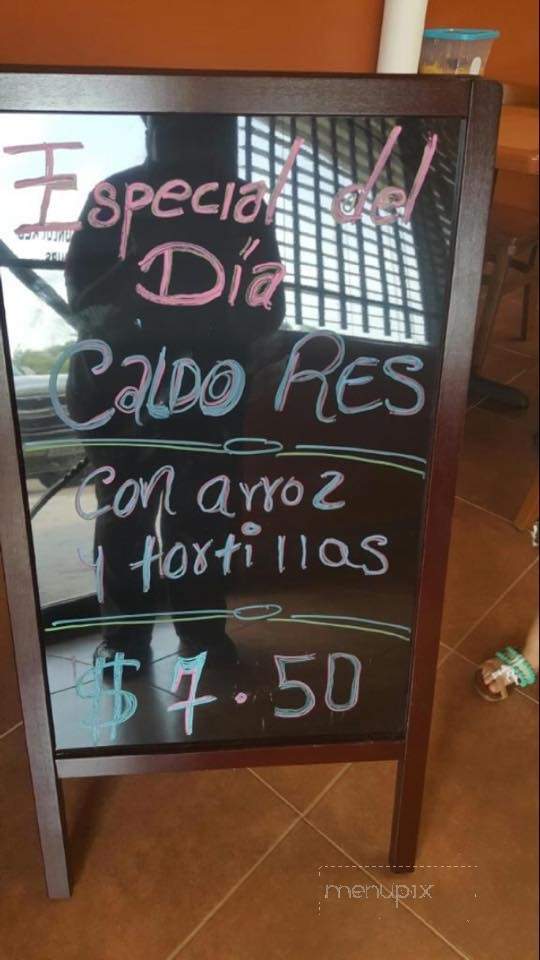 Especial del
Día
CALDO RES
con arroz
y tortillas
$7.50
menupix